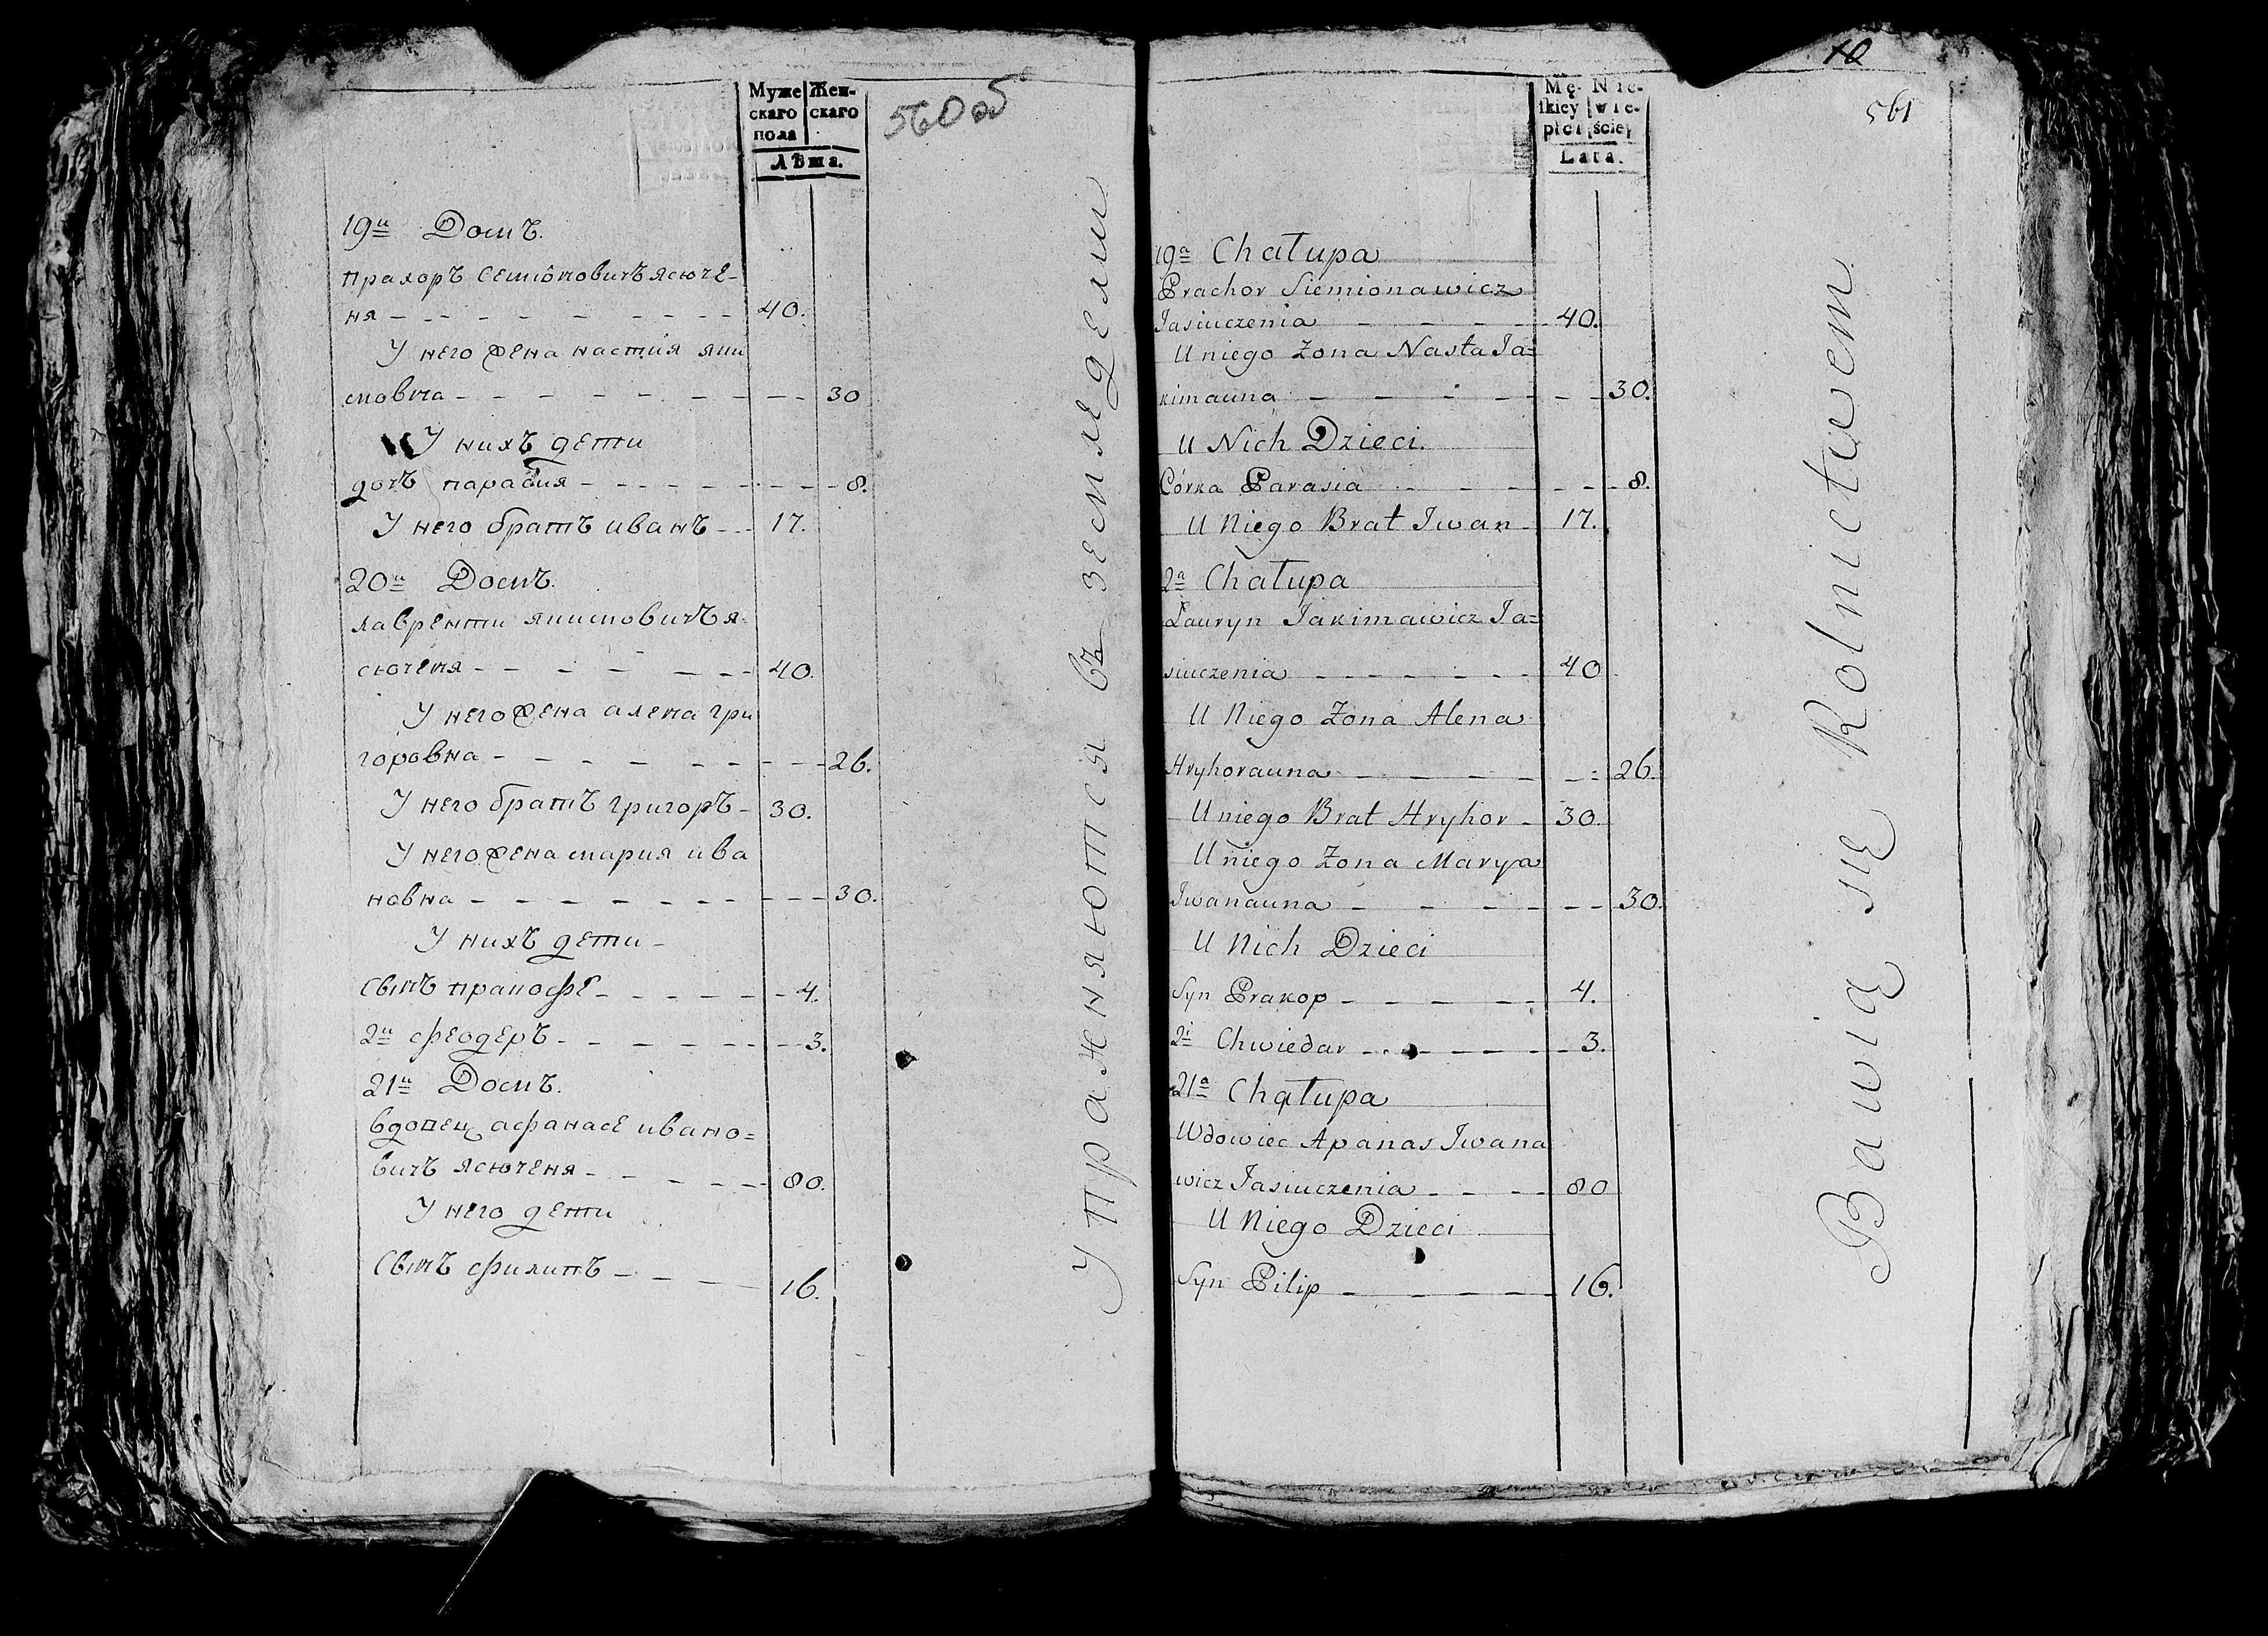 Муже Жен-
скаго скаго
пола
Лѣта.
560 об
19й Домъ.
прахоръ Семионовичъ ясюче-
ня 40.
У него жена настия яки
мовна 30
У нихъ дети
дочъ парасия 8.
У него братъ иванъ 17.
20й Домъ.
лаврентии якимовичъ я-
сюченя 40.
У него жена алена гри
горовна 26.
У него братъ григоръ 30.
У него жена мария ива
новна 30.
У нихъ дети
Сынъ 4.
2й феодеръ 3.
21й Домъ.
вдовец афанасе ивано=
вичъ ясюченя 80.
У него дети
Сынъ филипъ 16.
Упражняются въ земляделии
10
561
Mę- Nie-
ſkiey wie-
płci ściey
Lata.
19a Chałupa
Prachor Siemionawicz
Jasiuczenia 40.
U niego Zona Nasta Ja=
kimauna 30.
U Nich Dzieci.
Córka Parasia 8.
U Niego Brat Iwan 17.
2a Chałupa
Łauryn Jakimawicz Ja=
siuczenia 40
U Niego Zona Alena
Hryhorauna 26.
U niego Brat Hryhor 30.
U niego Zona Marya
Iwanauna 30.
U Nich Dzieci
Syn Prakop 4.
2i Chwiedar 3.
21a Chałupa
Wdowiec Apanas Iwana
wicz Jasiuczenia 80
U Niego Dzieci
Syn Pilip 16.
Bawią się Rolnictwem